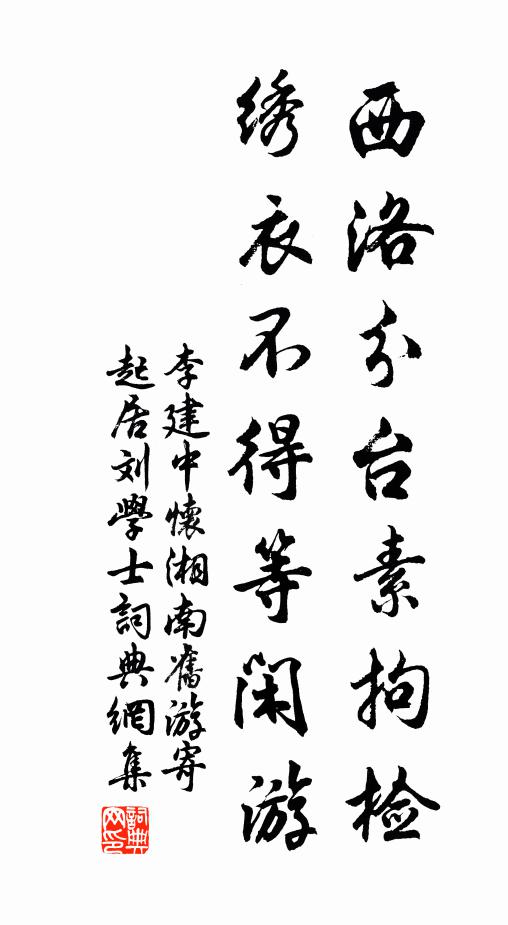 西洛分台素拘检
绣衣不得等闲游
李建中懷湘南舊游寄
起居刘學士詞典網集
詞典
网印